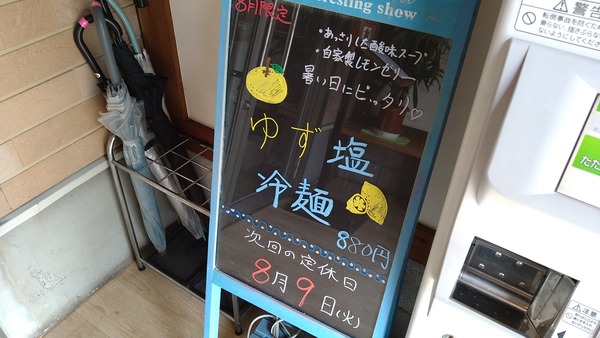 8月限定
resting show
・あっさりした酸味スープ
・自家製レモンゼリー
暑い日にピッタリ♡
ゆず塩
冷麺
880円
次回の定休日
8月9日(火)
警告
ただ
注意